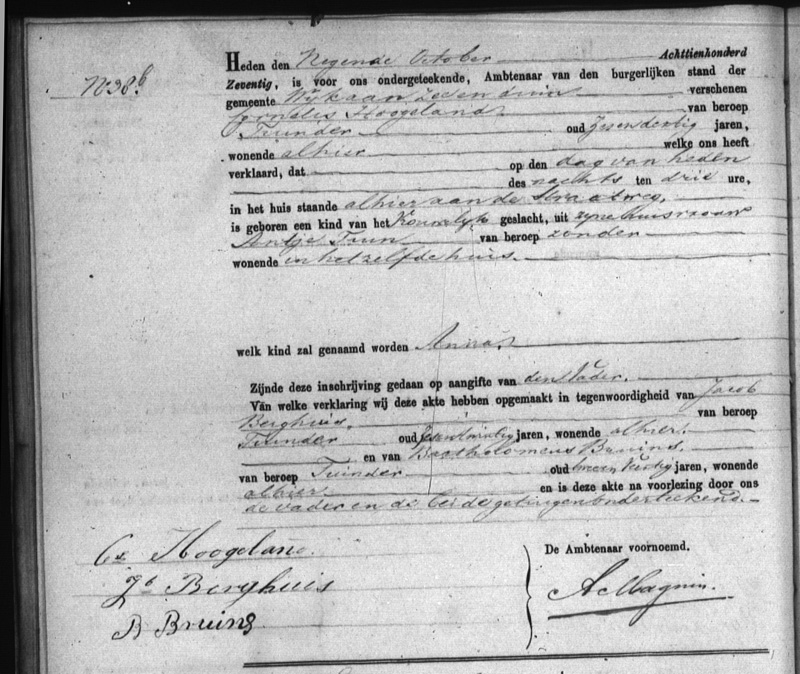 No 38b
Heden den Negende October Achttienhonderd
Zeventig, is voor ons ondergeteekende, Ambtenaar van den burgerlijken stand der
gemeente Wijk aan Zee en duin verschenen
Cornelis Hoogeland van beroep
Tuinder oud Zesendertig jaren,
wonende alhier welke ons heeft
verklaard, dat op den dag van heden
des nachts ten drie ure,
in het huis staande alhier aan de Straatweg,
is geboren een kind van het Vrouwelijk geslacht, uit zyne huisvrouw
Antje Tuin van beroep zonder
wonende in hetzelfde huis.
welk kind zal genaamd worden Anna
Zijnde deze inschrijving gedaan op aangifte van den Vader.
Van welke verklaring wij deze akte hebben opgemaakt in tegenwoordigheid van Jacob
Berghuis, van beroep
Tuinder oud jaren, wonende alhier.
en van Bartholomeus Bruins.
van beroep Tuinder oud jaren, wonende
alhier en is deze akte na voorlezing door ons
de vader en de beide getuigen onderteekend.
De Ambtenaar voornoemd.
Cs Hoogeland.
Jb Berghuis
B Bruins
A Magnin.